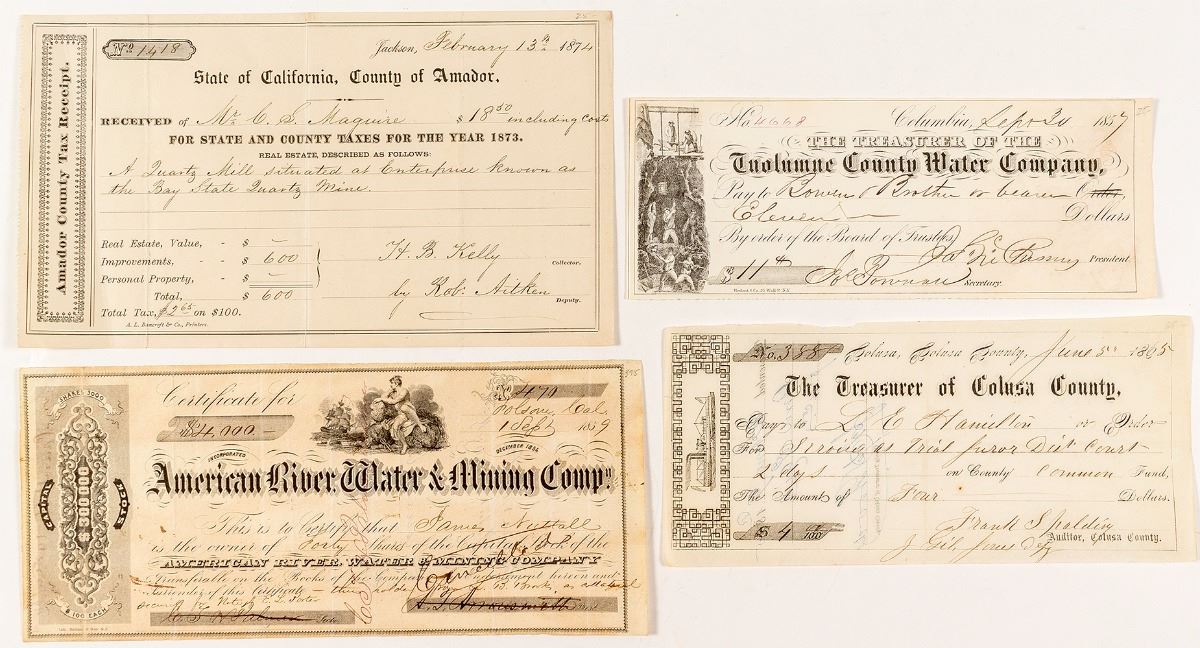 Amador County Tax Receipt.
No 1418
Jackson, February 13th 1874
State of California, County of Amador.
RECEIVED of Mr C. S. Maguire $ 18 50 including costs
FOR STATE AND COUNTY TAXES FOR THE YEAR 1873.
REAL ESTATE, DESCRIBED AS FOLLOWS:
A Quartz Mill situated at Enterprise known as
the Bay State Quartz Mine.
Real Estate, Value, - $ —
Improvements, - - $ 600
Personal Property, - $ —
Total, $ 600
Total Tax, $2.65 on $100.
H. B. Kelly Collector.
by Rob: Aitken Deputy.
A. L. Bancroft & Co., Printers.
No 4668 Columbia, Sept 24 1857
THE TREASURER OF THE
Tuolumne County Water Company,
Pay to Bowen & Brother or bearer Order,
Eleven Dollars
By order of the Board of Trustees,
President
$ 11
Secretary.
SHARES 3000
CAPITAL
$300,000
STOCK
$100 EACH
Certificate for
$4,000.—
No 470
Folsom, Cal
1 Sept 1859
INCORPORATED DECEMBER 1854
American River, Water & Mining Compy
This is to Certify that James Nuttall
is the owner of Forty Shares of the Capital Stock of the
AMERICAN RIVER, WATER & MINING COMPANY
Transferable on the Books of the Company by endorsement hereon and
Surrender of this Certificate
Secy
Prest
No. 388 Colusa, Colusa County, June 5th 1865
The Treasurer of Colusa County,
Pay to L E Hamilton or Order
For Serving as Trial Juror Dist Court
2 days on County Common Fund,
The Amount of Four Dollars.
$ 4 /100
Frank Spalding
Auditor, Colusa County.